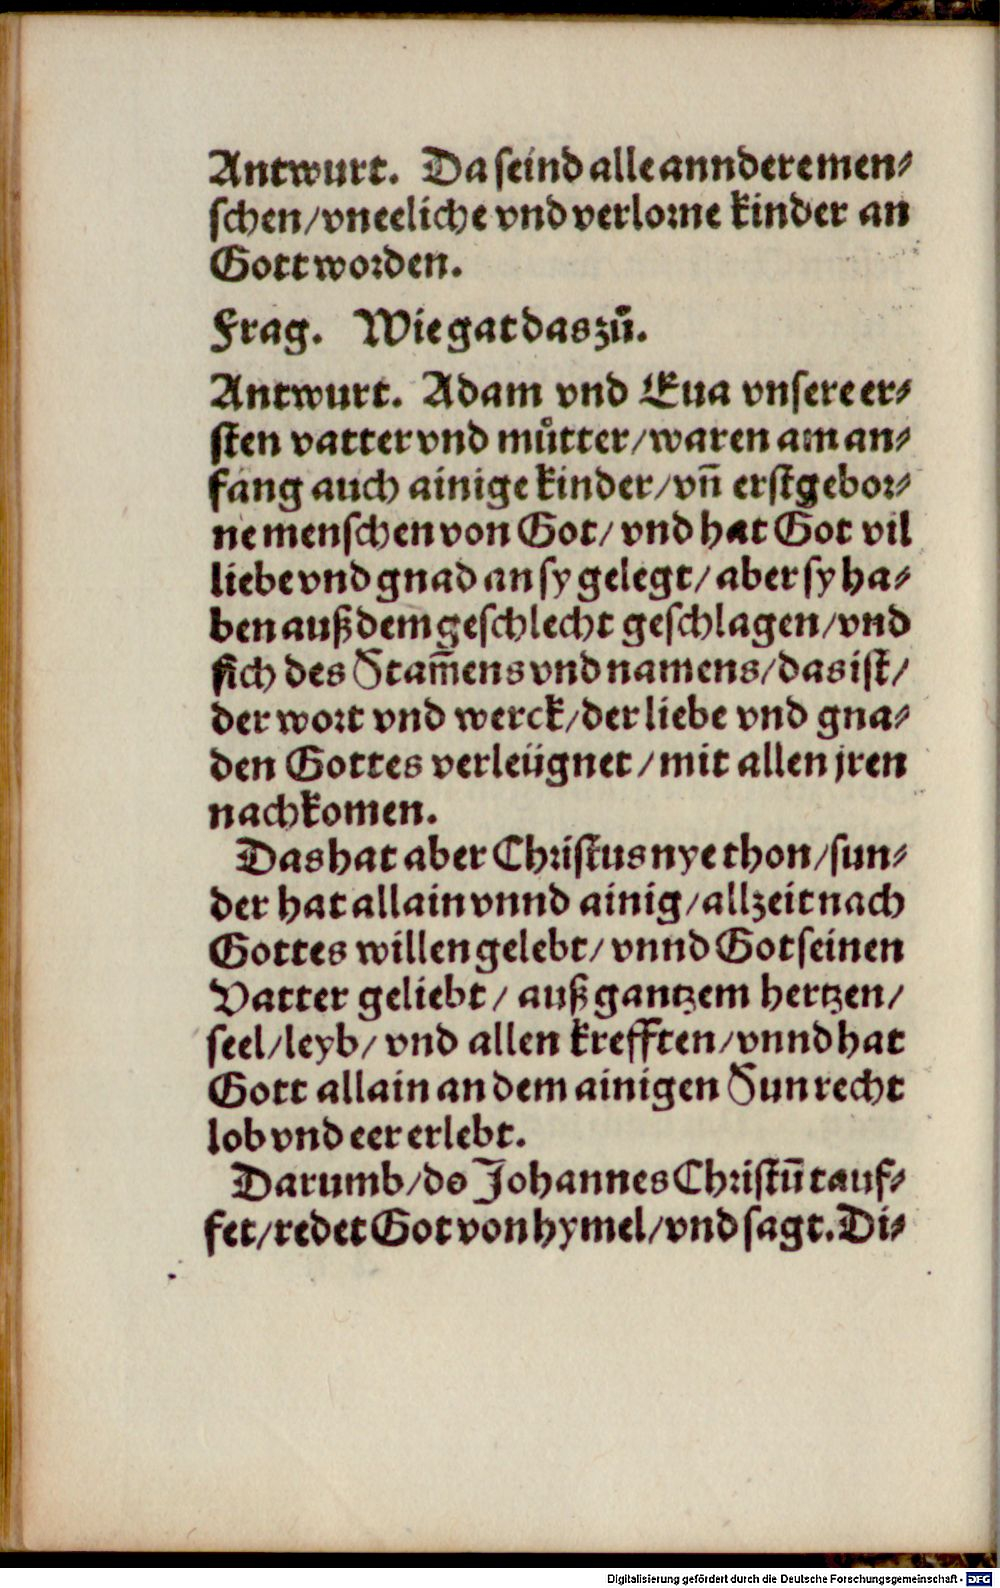 Antwurt. Da seind alle annderemen⸗
schen/vneeliche vnd verlorne kinder an
Gott worden.
Frag. Wie gat das zů.
Antwurt. Adam vnd Eua vnsere er⸗
sten vatter vnd můtter/waren am an⸗
fang auch ainige kinder/vñ erstgebor⸗
ne menschen von Got/ vnd hat Got vil
liebe vnd gnad an sy gelegt/ aber sy ha⸗
ben auß dem geschlecht geschlagen/vnd
sich des Stam̃ens vnd namens/das ist/
der wort vnd werck/der liebe vnd gna⸗
den Gottes verleügnet/mit allen jren
nachkomen.
Das hat aber Christus nye thon/sun⸗
der hat allain vnnd ainig/allzeit nach
Gottes willen gelebt/ vnnd Got seinen
Vatter geliebt/ auß gantzem hertzen/
seel/leyb/ vnd allen krefften/vnnd hat
Gott allain an dem ainigen Sun recht
lob vnd eer erlebt.
Darumb/do Johannes Christũ tauf⸗
fet/redet Got von hymel/vnd sagt. Di⸗
Digitalisierung gefördert durch die Deutsche Forschungsgemeinschaft - DFG